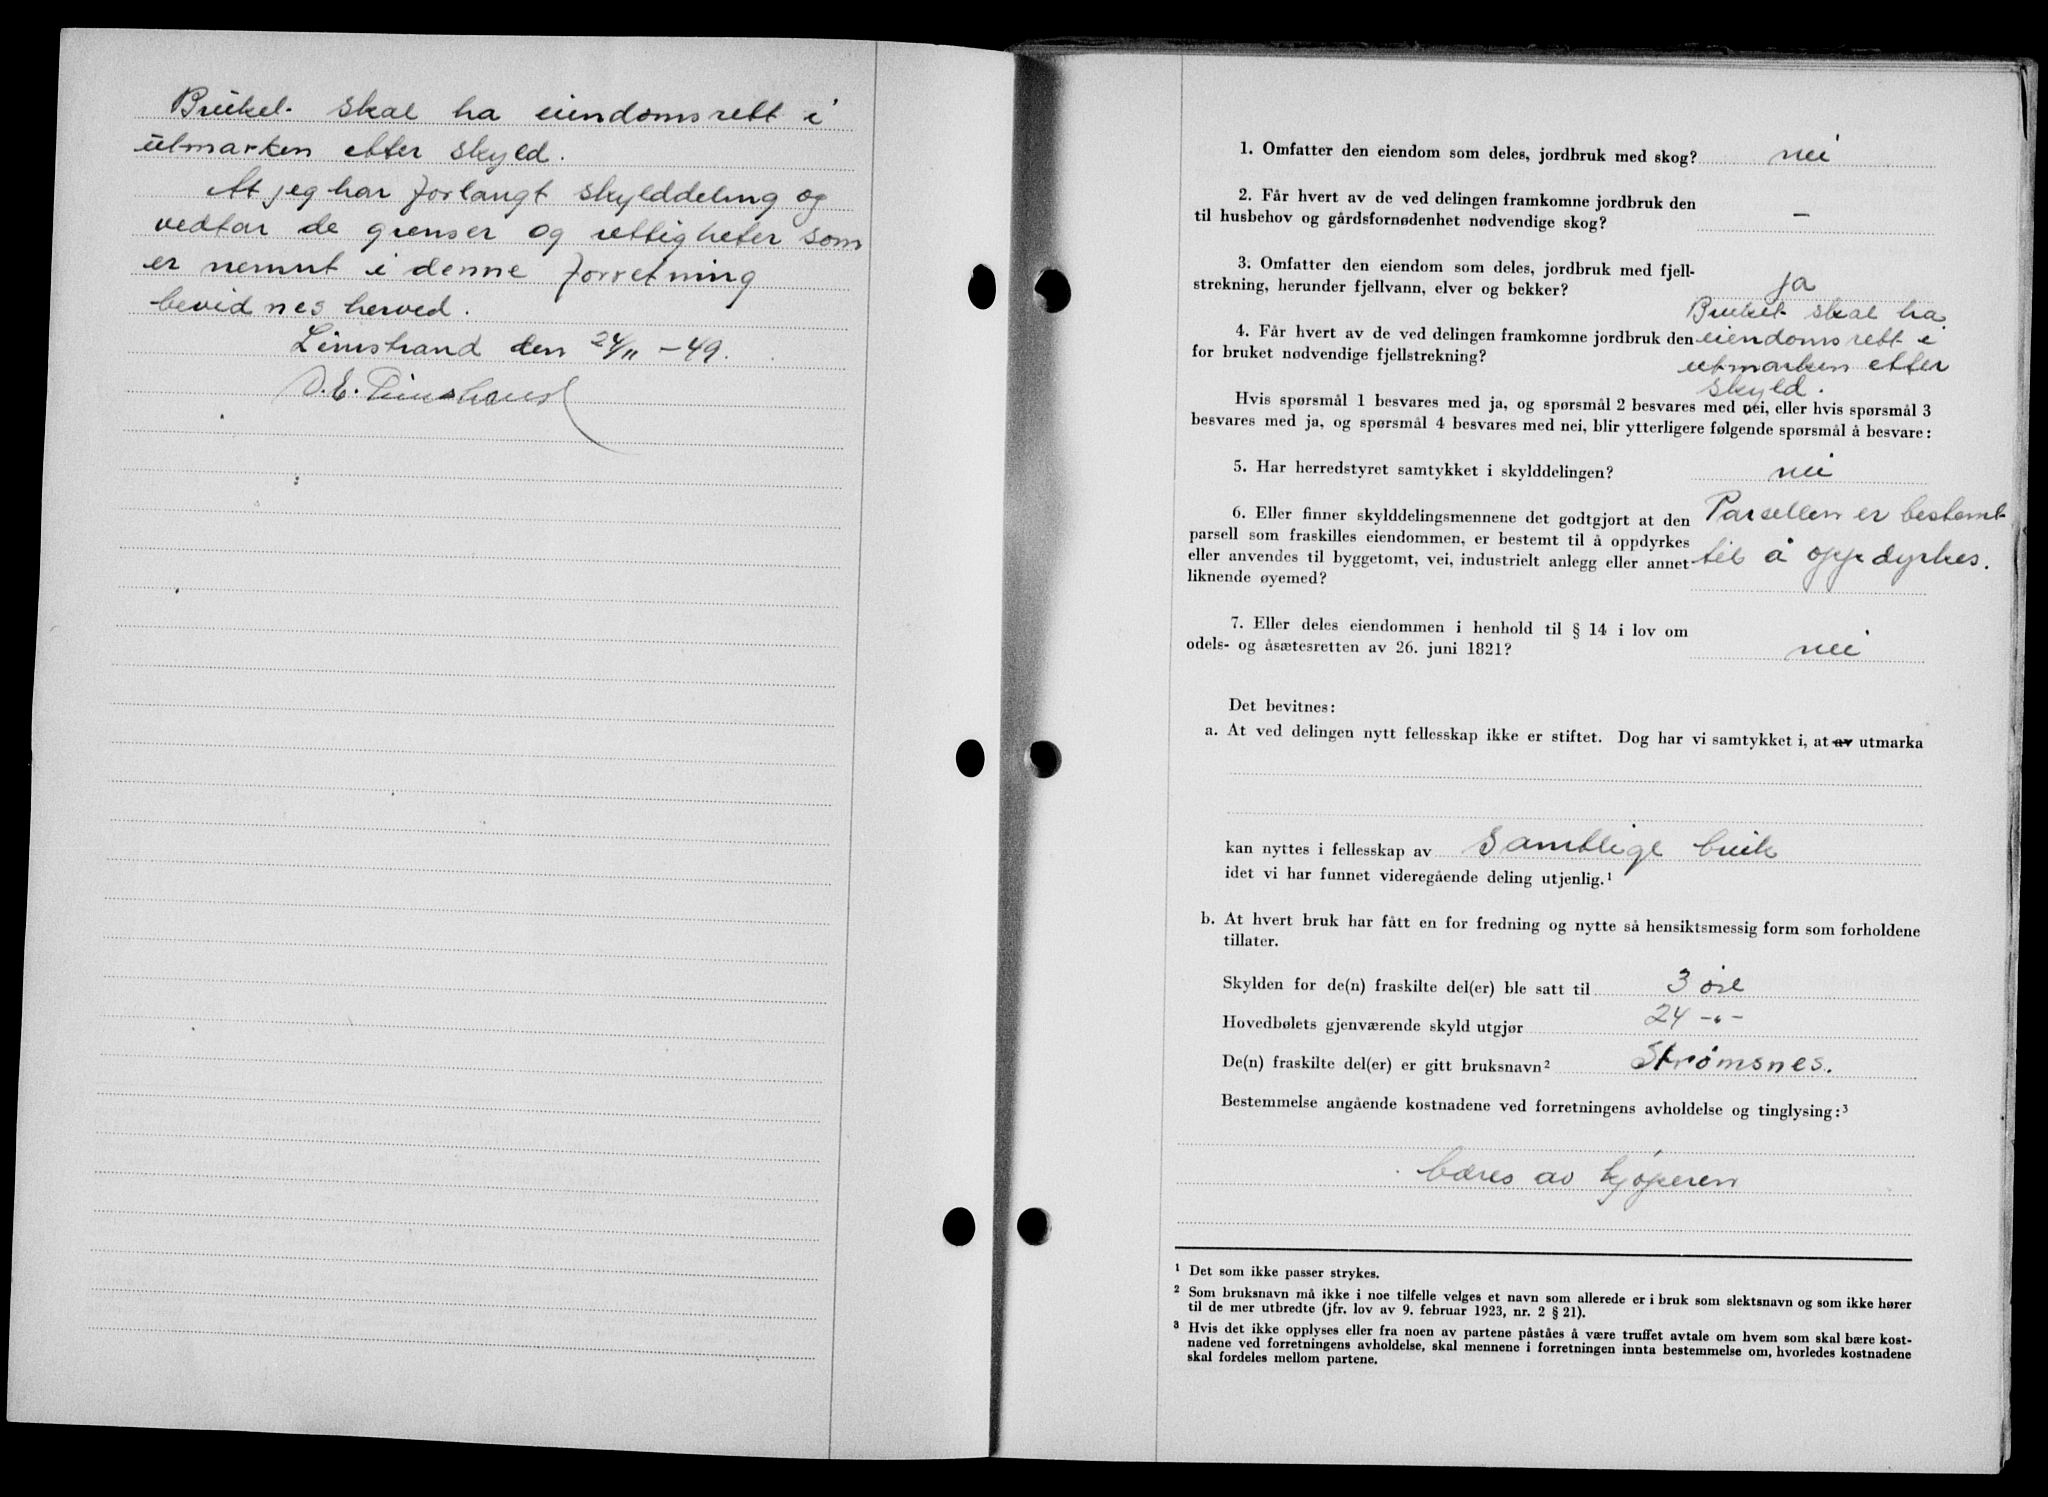 Bruket skal ha eiendomsrett i
utmarken etter skyld.
At jeg har forlangt skylddeling og
vedtar de grenser og rettigheter som
er nemnt i denne forretning
bevidnes herved.
Limstrand den 24/11 -49.
O. E. Limstrand
1. Omfatter den eiendom som deles, jordbruk med skog? nei
2. Får hvert av de ved delingen framkomne jordbruk den
til husbehov og gårdsfornødenhet nødvendige skog? –
3. Omfatter den eiendom som deles, jordbruk med fjell-
strekning, herunder fjellvann, elver og bekker? ja
Bruket skal ha
4. Får hvert av de ved delingen framkomne jordbruk den eiendomsrett i
for bruket nødvendige fjellstrekning? utmarken etter
skyld.
Hvis spørsmål 1 besvares med ja, og spørsmål 2 besvares med nei, eller hvis spørsmål 3
besvares med ja, og spørsmål 4 besvares med nei, blir ytterligere følgende spørsmål å besvare:
5. Har herredstyret samtykket i skylddelingen? nei
6. Eller finner skylddelingsmennene det godtgjort at den Parsellen er bestemt
parsell som fraskilles eiendommen, er bestemt til å oppdyrkes
eller anvendes til byggetomt, vei, industrielt anlegg eller annet til å oppdyrkes.
liknende øyemed?
7. Eller deles eiendommen i henhold til § 14 i lov om
odels- og åsætesretten av 26. juni 1821? nei
Det bevitnes:
a. At ved delingen nytt fellesskap ikke er stiftet. Dog har vi samtykket i, at av utmarka
kan nyttes i fellesskap av samtlige bruk
idet vi har funnet videregående deling utjenlig.¹
b. At hvert bruk har fått en for fredning og nytte så hensiktsmessig form som forholdene
tillater.
Skylden for de(n) fraskilte del(er) ble satt til 3 øre
Hovedbølets gjenværende skyld utgjør 24 -"-
De(n) fraskilte del(er) er gitt bruksnavn² Strømsnes.
Bestemmelse angående kostnadene ved forretningens avholdelse og tinglysing:³
bæres av kjøperen
¹ Det som ikke passer strykes.
² Som bruksnavn må ikke i noe tilfelle velges et navn som allerede er i bruk som slektsnavn og som ikke hører
til de mer utbredte (jfr. lov av 9. februar 1923, nr. 2 § 21).
³ Hvis det ikke opplyses eller fra noen av partene påståes å være truffet avtale om hvem som skal bære kost-
nadene ved forretningens avholdelse, skal mennene i forretningen innta bestemmelse om, hvorledes kostnadene
skal fordeles mellom partene.